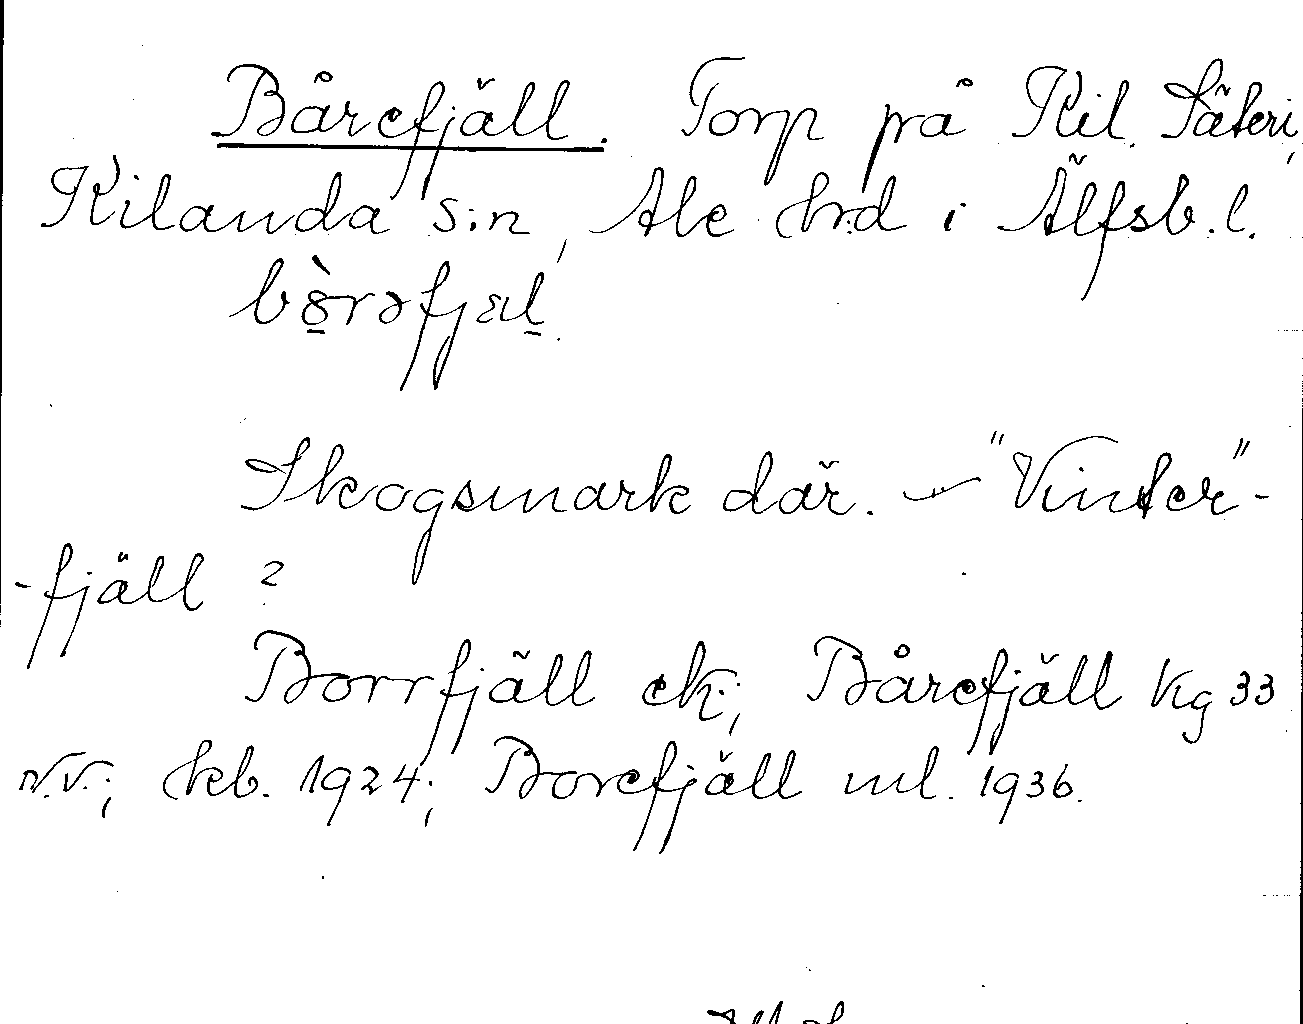 Bårefjäll. Torp på Kil. Säteri,
Kilanda s:n, Ale hrd i Älfsb. l.
bòrəfjæl.
Skogsmark där. – "Vinter"-
-fjäll ?
Borrfjäll ek.; Bårefjäll Kg 33
N.V.; kb. 1924; Borefjäll ml. 1936.